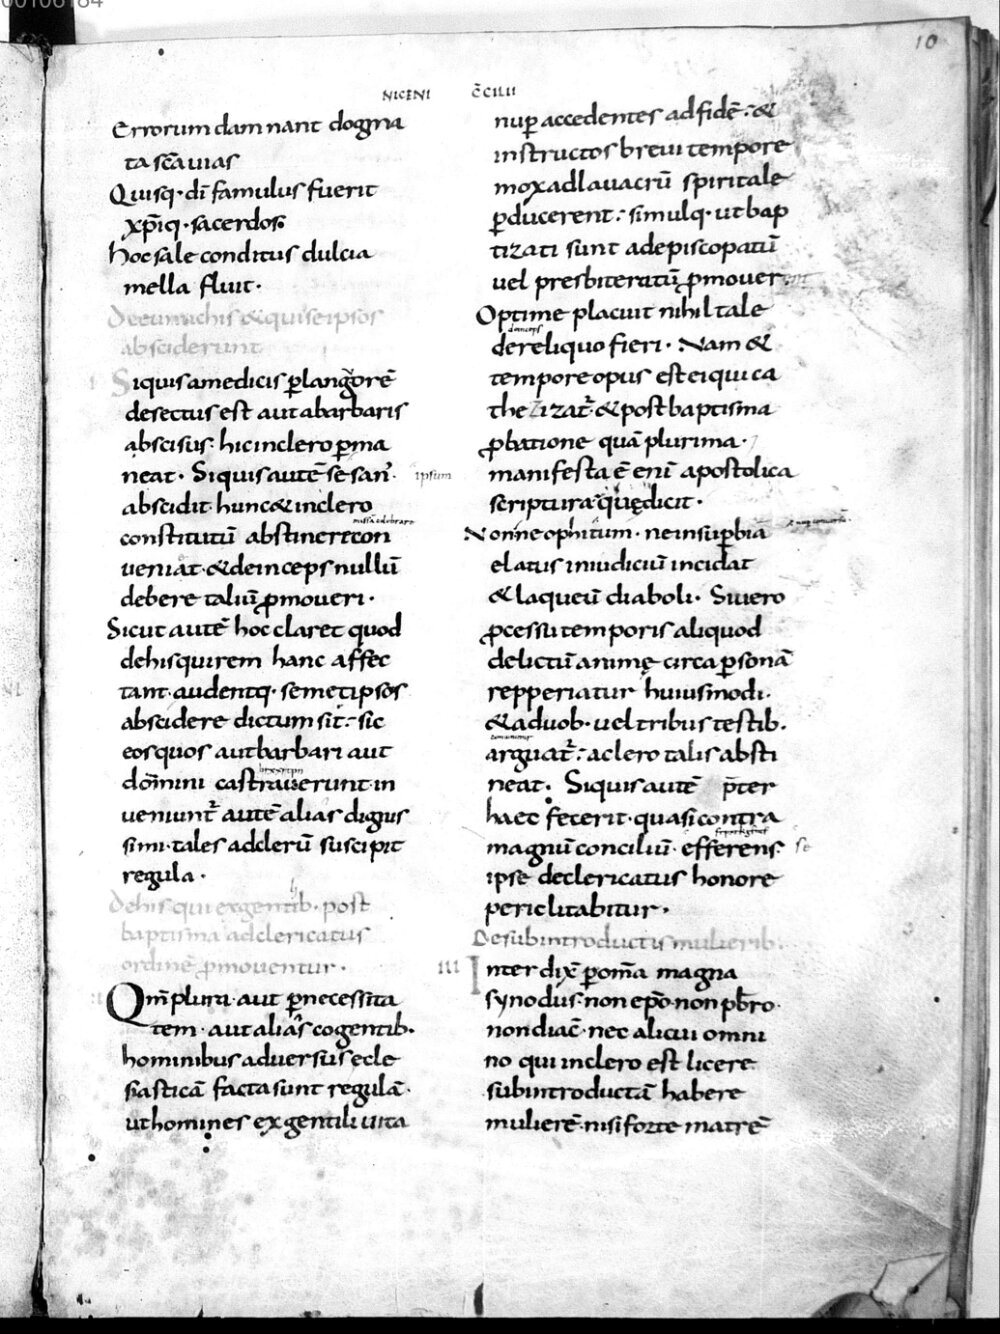 00106184
10
NICENI C̄CILII
Errorum damnant dogma
ta sc̄a uias
Quisq· dī famulus fuerit
xp̄iq· sacerdos
hoc sale conditus dulcia
mella fluit·
De eunuchis & qui se ipsos
absciderunt
I Siquis a medicis p̱ langorē
desectus est aut a barbaris
abscisus· hic in clero p̱ma
neat· Siquis autē se san̄· ipsum
abscidit· hunc & in clero
missa celebrare
constitutū abstinere con
ueniat· & deinceps nullū
debere taliū ꝓmoueri·
Sicut autē hoc claret quod
de his qui rem hanc affec
tant· audentq· semetipsos
abscidere dictum sit:· sic
eos quos aut barbari aut
dōmini castrauerunt· in
ueniunt᷑ autē alias dignis
simi· tales ad clerū suscipit
regula·
de his qui ex gentib· post
baptisma ad clericatus
ordinē ꝓmouentur·
II Qm̄ plura· aut p̱ necessita
tem· aut alias cogentib·
hominibus aduersus ecle
siasticā facta sunt regulā·
ut homines ex gentili uita
nup̱ accedentes ad fidē:· &
instructos breui tempore
mox ad lauacrū spiritale
p̱ducerent:· simulq· ut bap
tizati sunt ad episcopatū
uel presbiteratū ꝓmouerent
Optime placuit nihil tale
deinceps
de reliquo fieri· Nam &
tempore opus est ei qui ca
thezizat᷑· & post baptisma
ꝓbatione quā plurima·
manifesta ē enī apostolica
scriptura quę dicit·
Non neophitum· ne in sup̱biā
elatus in iudiciū incidat
& laqueū diaboli· Si uero
ꝓcessu temporis aliquod
delictū animę circa p̱sonā
repperiatur huiusmodi·
& a duob· uel tribus testib·
arguat᷑:· a clero talis absti
neat· Siquis autē p̄ter
haec fecerit· quasi contra
magnū conciliū· efferens· se
ipse de clericatus honore
periclitabitur·
De subintroductis mulierib·
III Interdix̄ p̱ om̄a magna
synodus· non ep̄o· non pb̄ro·
non diac̄· nec alicui omni
no qui in clero est licere
subintroductā habere
mulierē· nisi forte matrē